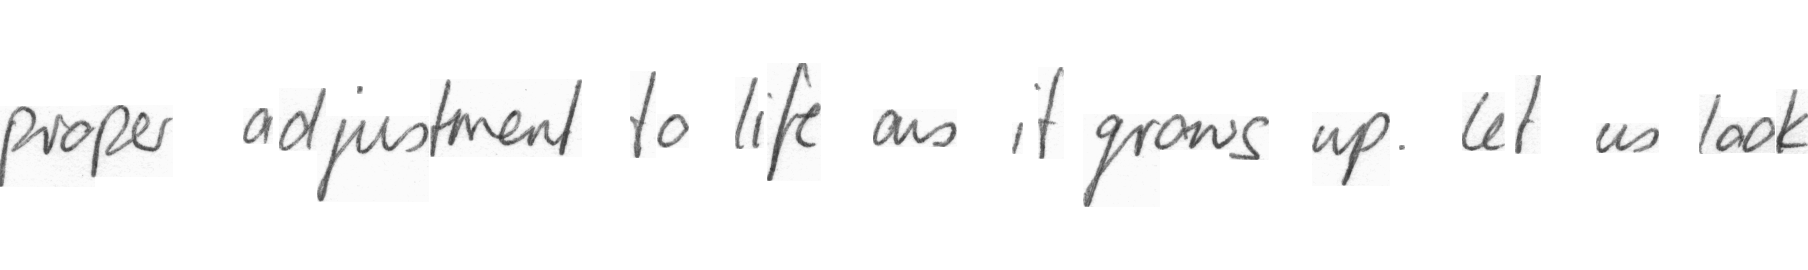 proper adjustment to life as it grows up. Let us look